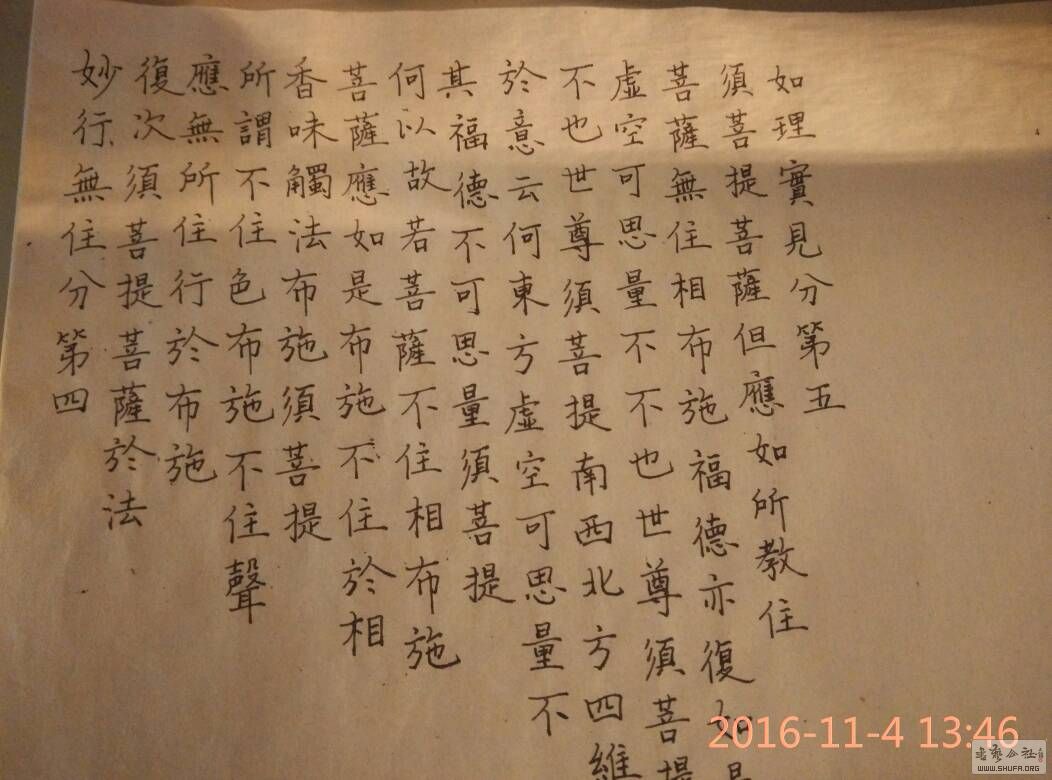 妙行無住分第四
復次須菩提菩薩於法
應無所住行於布施
所謂不住色布施不住聲
香味觸法布施須菩提
菩薩應如是布施不住於相
何以故若菩薩不住相布施
其福德不可思量須菩提
於意云何東方虛空可思量不
不也世尊須菩提南西北方四維
虛空可思量不不也世尊須菩提
菩薩無住相布施福德亦復如是
須菩提菩薩但應如所教住
如理實見分第五
2016-11-4 13:46
WWW.SHUFA.ORG